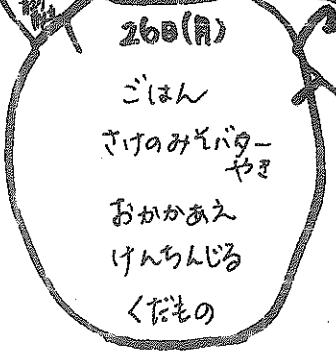 26日(月)
ごはん
さけのみそバター
やき
おかかあえ
けんちんじる
くだもの